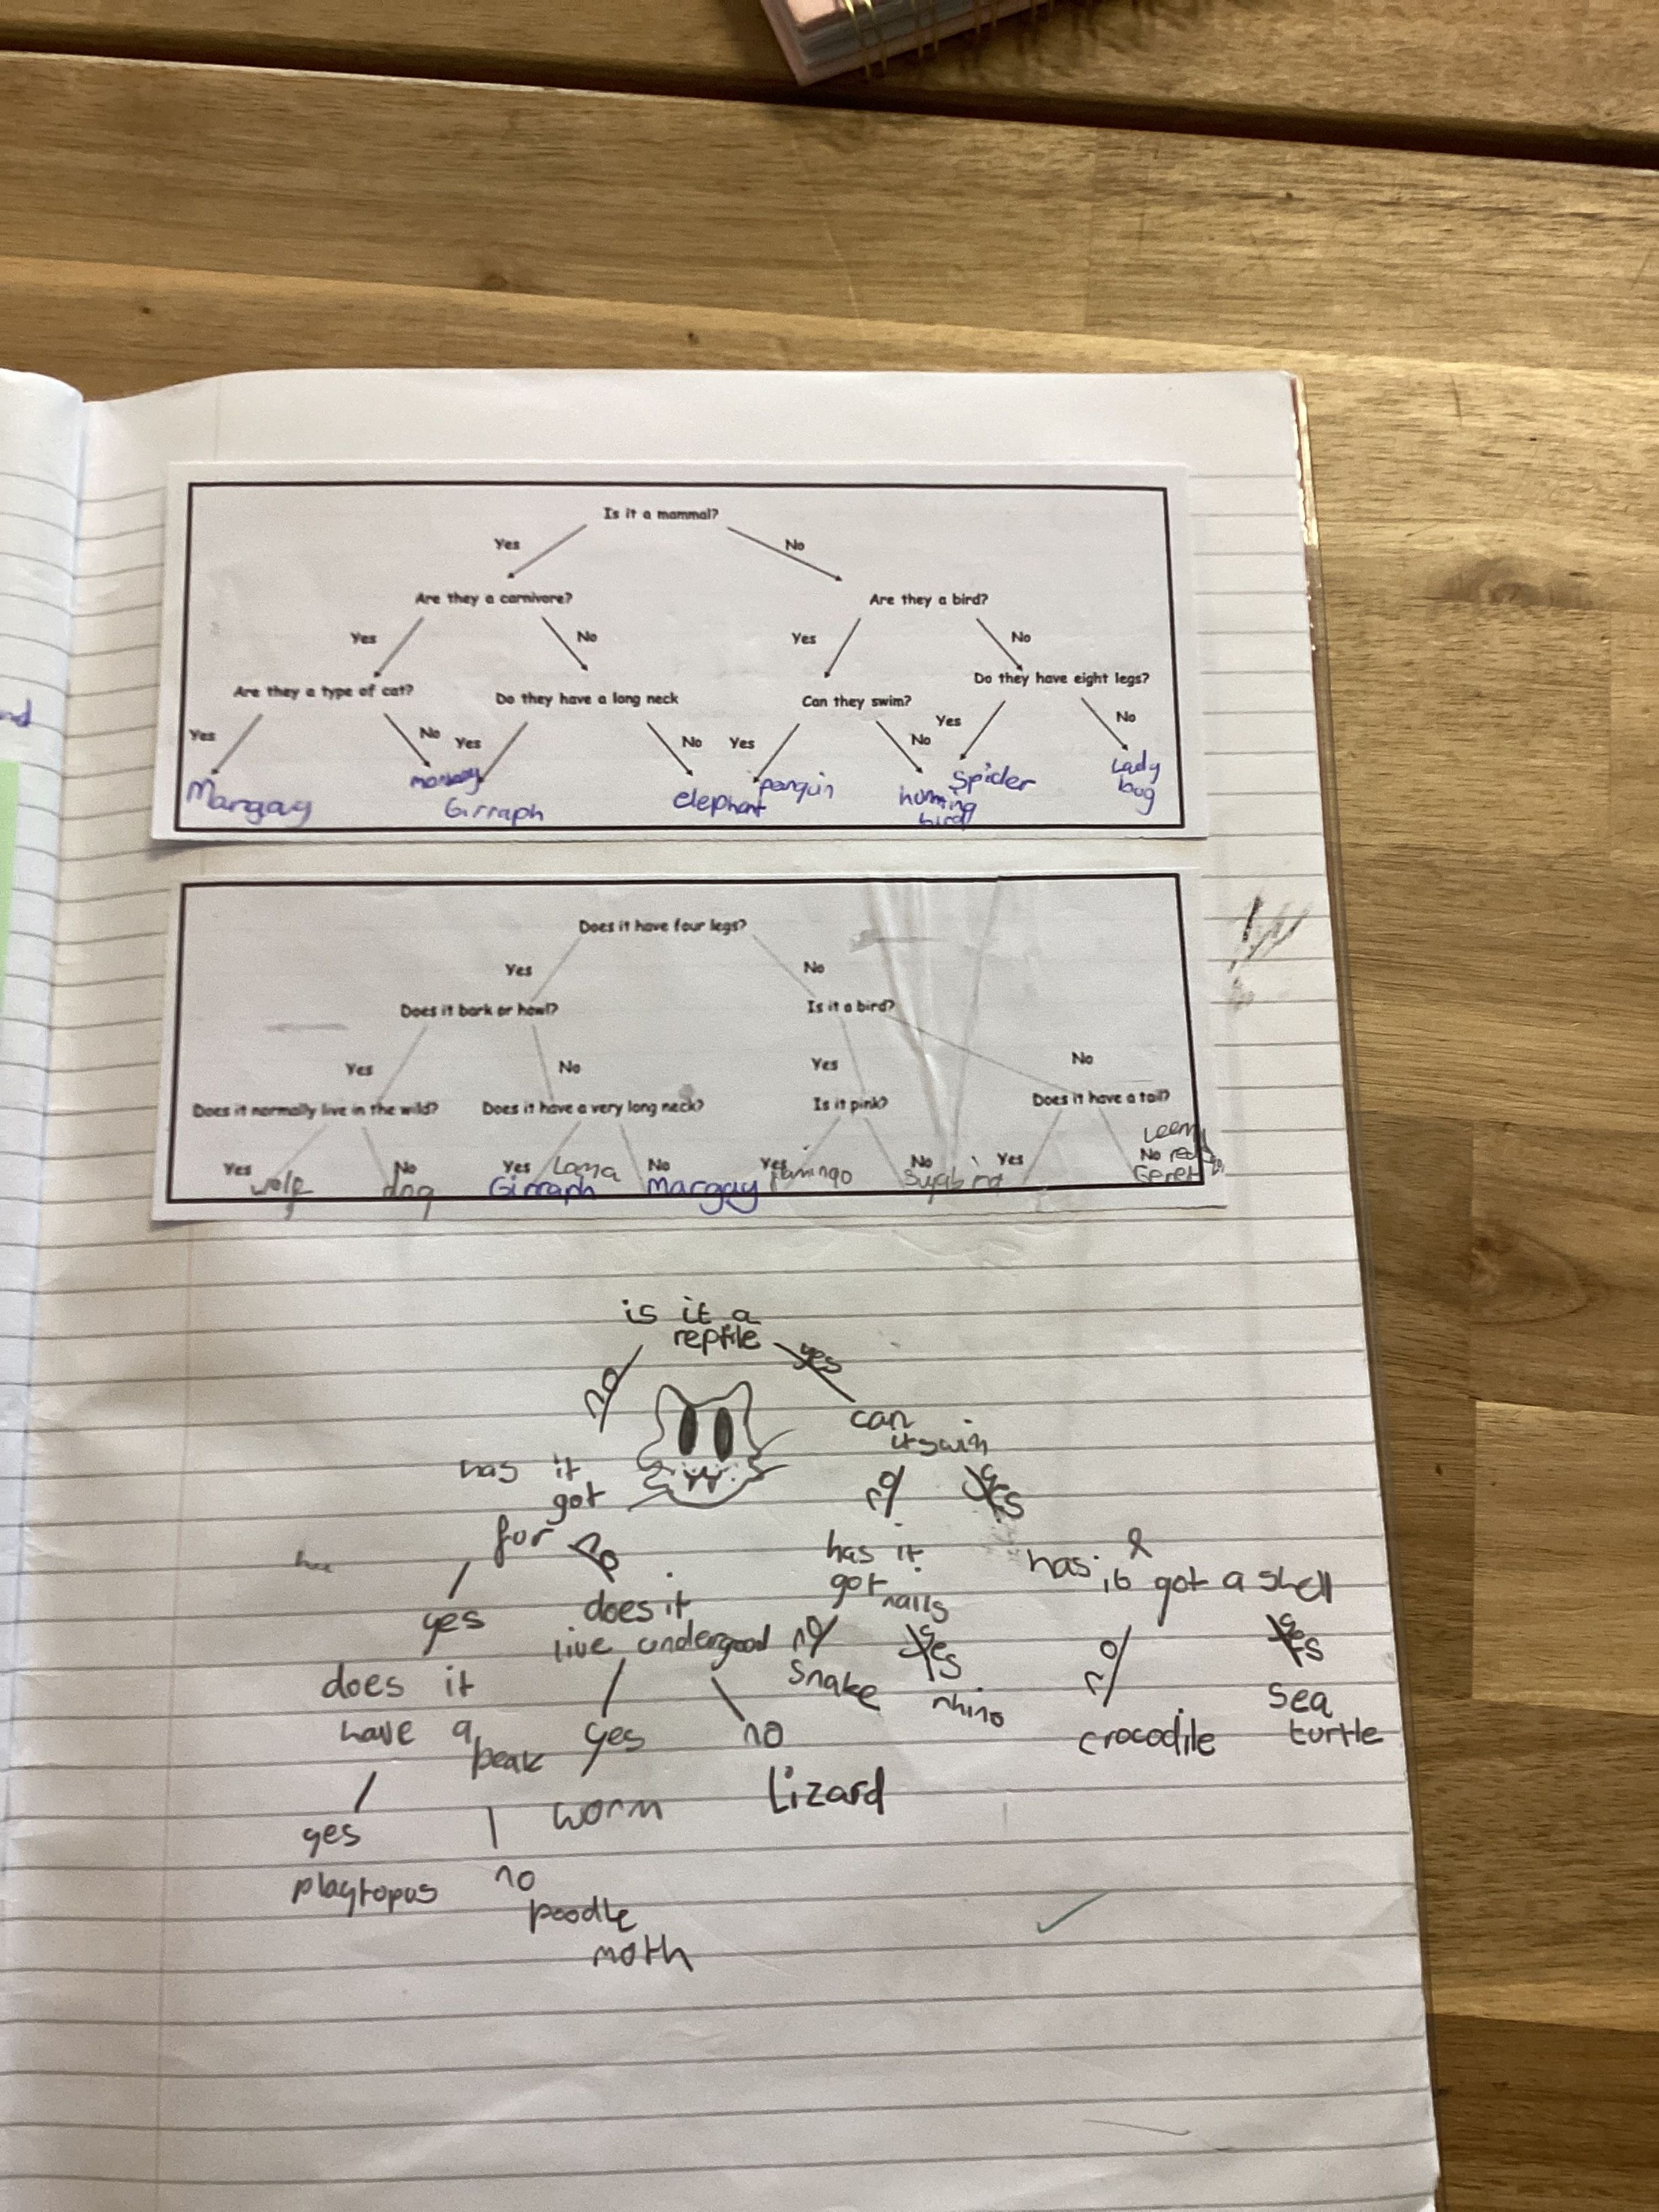 nd
Is it a mammal?
Yes No
Are they a carnivore? Are they a bird?
Yes No Yes No
Are they a type of cat? Do they have a long neck Can they swim? Do they have eight legs?
Yes No Yes No Yes No Yes No
Margay Girraph elephant penguin huming bird Spider Lady bug
Does it have four legs?
Yes No
Does it bark or howl? Is it a bird?
Yes No Yes No
Does it normally live in the wild? Does it have a very long neck? Is it pink? Does it have a tail?
Yes No Yes Lama No Yes No Yes No
wolf dog Girraph Margay flamingo
is it a
reptile
no yes
can
it swim
has it
got
for no
no yes
has it
got nails
has it got a shell
yes
does it
live undergood
no yes
no yes
does it
have a
peak
yes no
Snake rhino
crocodile
sea
turtle
yes
no
worm
Lizard
playtopus
poodle
moth